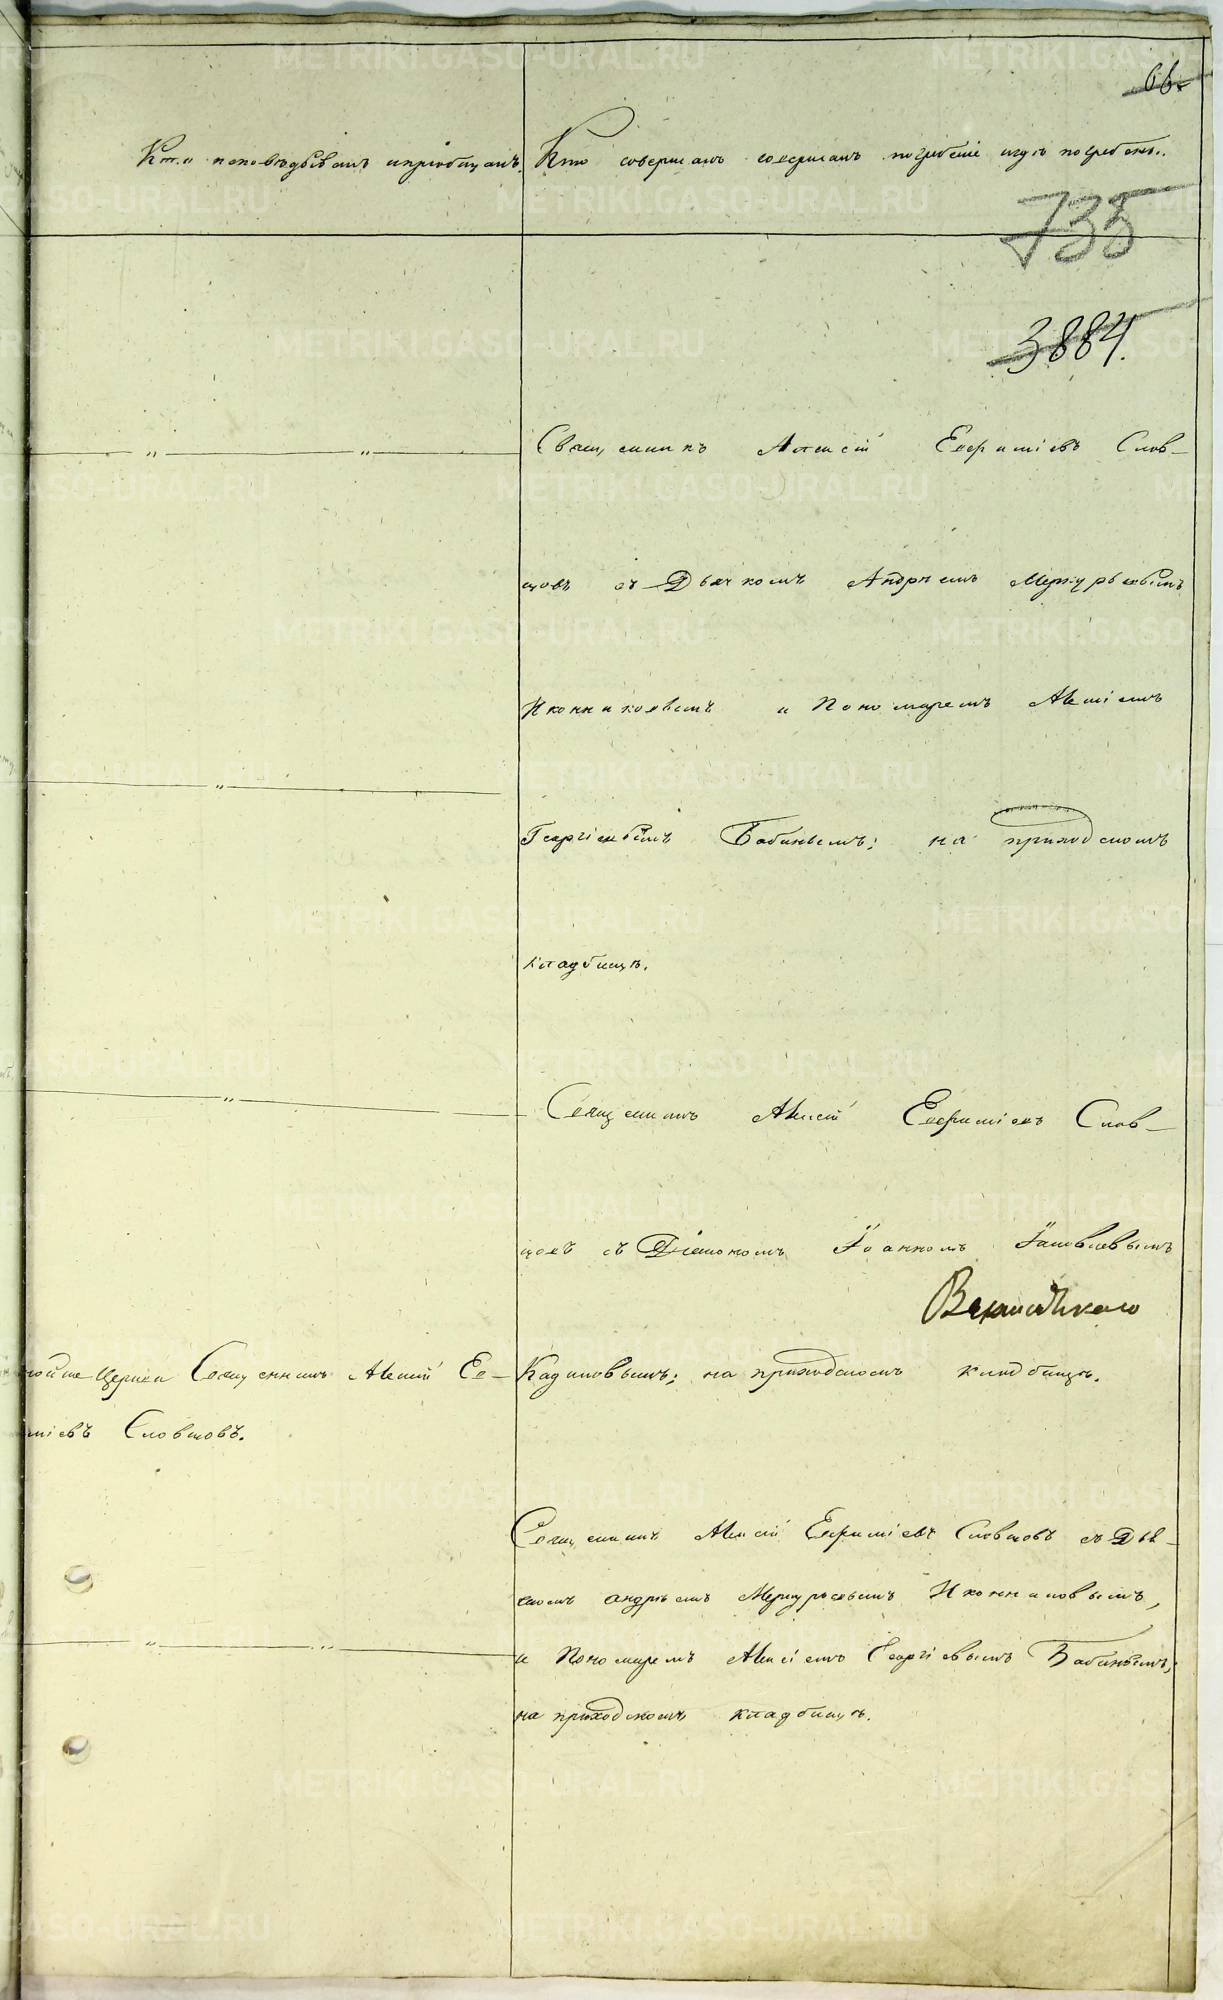 66.
Кто исповѣдывалъ и пріобщалъ.
Кто совершалъ совершалъ погребеніе и гдѣ погребены.
735
3884.
Священникъ Алексій Евфиміевъ Слов-
цовъ съ Дьячкомъ Андреемъ Меркурьевымъ
Иконниковымъ и Пономаремъ Алексіемъ
Георгіевымъ Бабинымъ; на приходскомъ
кладбищѣ.
Священникъ Алексій Евфиміевъ Слов-
цовъ съ Діакономъ Іоанномъ Іаковлевымъ
Кадиковымъ; на приходскомъ кладбищѣ.
тойже Церкви Священникъ Алексій Ев-
міевъ Словцовъ.
Священникъ Алексій Евфиміевъ Словцовъ съ Дья-
комъ Андреемъ Меркурьевымъ Иконниковымъ,
и Пономаремъ Алексіемъ Георгіевымъ Бабинымъ;
на приходскомъ кладбищѣ.
METRIKI.GASO-URAL.RU